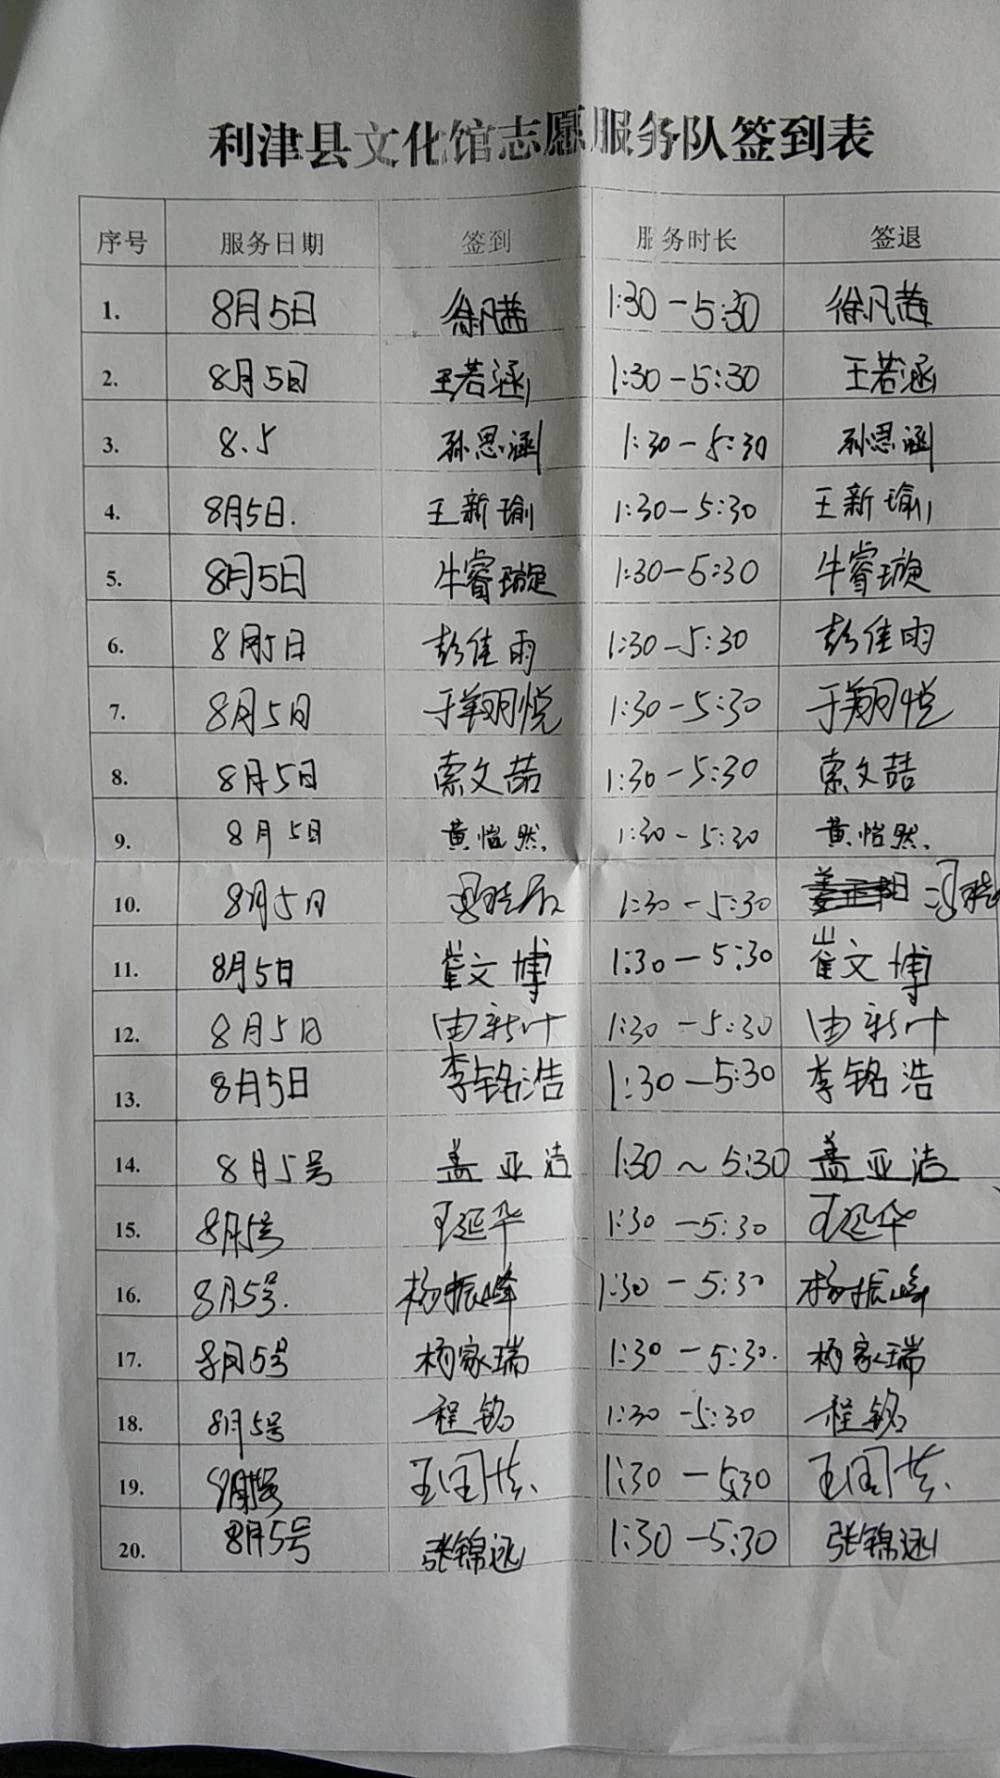 利津县文化馆志愿服务队签到表
序号 服务日期 签到 服务时长 签退
1. 8月5日 徐凡茜 1:30-5:30 徐凡茜
2. 8月5日 王若涵 1:30-5:30 王若涵
3. 8.5 孙思涵 1:30-5:30 孙思涵
4. 8月5日. 王新瑜 1:30-5:30 王新瑜
5. 8月5日 牛睿璇 1:30-5:30 牛睿璇
6. 8月5日 彭佳雨 1:30-5:30 彭佳雨
7. 8月5日 于翔悦 1:30-5:30 于翔悦
8. 8月5日 索文喆 1:30-5:30 索文喆
9. 8月5日 黄怡然. 1:30-5:30 黄怡然.
10. 8月5日 1:30-5:30
11. 8月5日 崔文博 1:30-5:30 崔文博
12. 8月5日 由新叶 1:30-5:30 由新叶
13. 8月5日 李铭浩 1:30-5:30 李铭浩
14. 8月5号 盖亚洁 1:30~5:30 盖亚洁
15. 8月5号 王延华 1:30-5:30 王延华
16. 8月5号. 杨振峰 1:30-5:30 杨振峰
17. 8月5号 杨家瑞 1:30-5:30. 杨家瑞
18. 8月5号 程铭 1:30-5:30 程铭
19. 8月5号 1:30-5:30
20. 8月5号 张锦远 1:30-5:30 张锦远